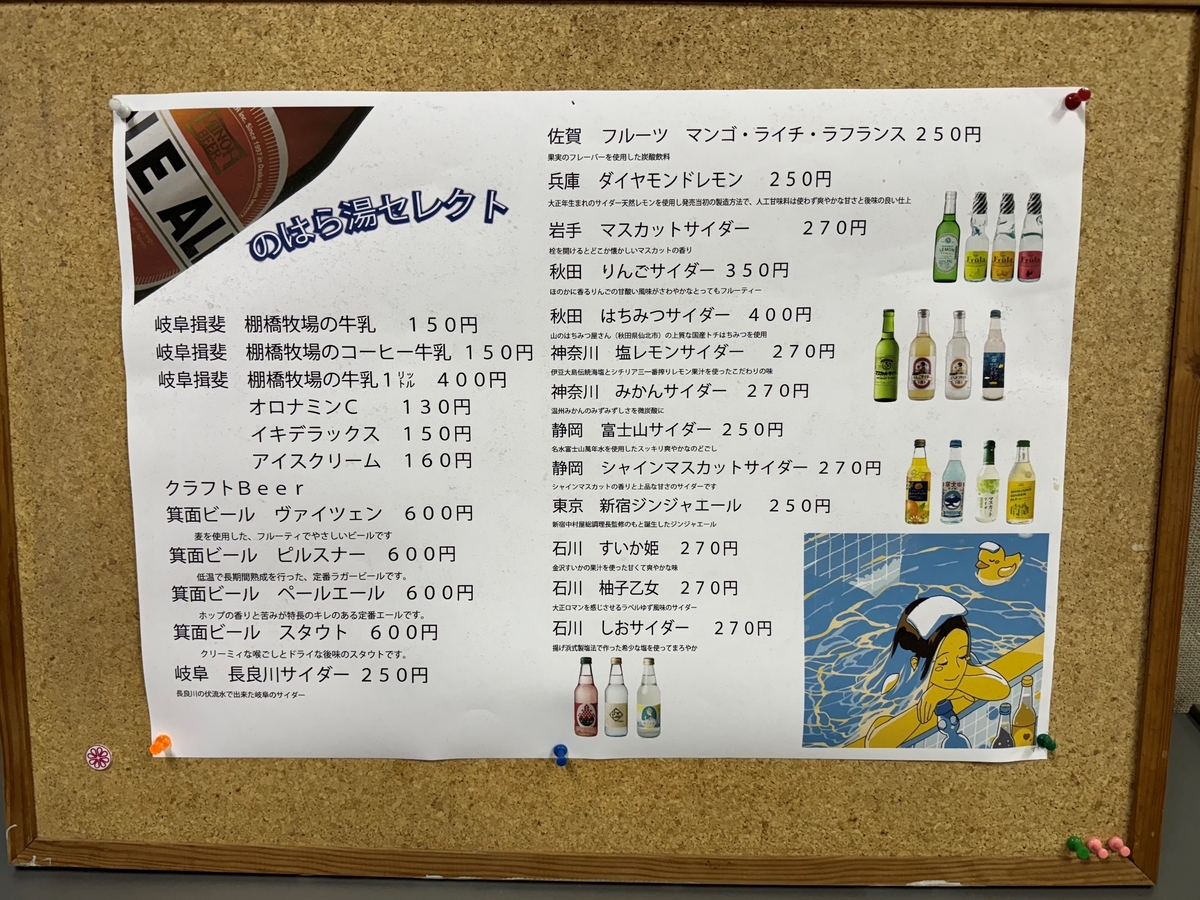 LE AL
Since 1997 in Osaka
MINOH
BEER
のはら湯セレクト
岐阜揖斐 棚橋牧場の牛乳 150円
岐阜揖斐 棚橋牧場のコーヒー牛乳 150円
岐阜揖斐 棚橋牧場の牛乳1㍑ 400円
オロナミンC 130円
イキデラックス 150円
アイスクリーム 160円
クラフトBeer
箕面ビール ヴァイツェン 600円
麦を使用した、フルーティでやさしいビールです
箕面ビール ピルスナー 600円
低温で長期間熟成を行った、定番ラガービールです。
箕面ビール ペールエール 600円
ホップの香りと苦みが特長のキレのある定番エールです。
箕面ビール スタウト 600円
クリーミィな喉ごしとドライな後味のスタウトです。
岐阜 長良川サイダー 250円
長良川の伏流水で出来た岐阜のサイダー
佐賀 フルーツ マンゴ・ライチ・ラフランス 250円
果実のフレーバーを使用した炭酸飲料
兵庫 ダイヤモンドレモン 250円
大正年生まれのサイダー天然レモンを使用し発売当初の製造方法で、人工甘味料は使わず爽やかな甘さと後味の良い仕上
岩手 マスカットサイダー 270円
栓を開けるとどこか懐かしいマスカットの香り
秋田 りんごサイダー 350円
ほのかに香るりんごの甘酸い風味がさわやかなとってもフルーティー
秋田 はちみつサイダー 400円
山のはちみつ屋さん（秋田県仙北市）の上質な国産トチはちみつを使用
神奈川 塩レモンサイダー 270円
伊豆大島伝統海塩とシチリア三一番搾りレモン果汁を使ったこだわりの味
神奈川 みかんサイダー 270円
温州みかんのみずみずしさを微炭酸に
静岡 富士山サイダー 250円
名水富士山萬年水を使用したスッキリ爽やかなのどごし
静岡 シャインマスカットサイダー 270円
シャインマスカットの香りと上品な甘さのサイダーです
東京 新宿ジンジャエール 250円
新宿中村屋総調理長監修のもと誕生したジンジャエール
石川 すいか姫 270円
金沢すいかの果汁を使った甘くて爽やかな味
石川 柚子乙女 270円
大正ロマンを感じさせるラベルゆず風味のサイダー
石川 しおサイダー 270円
揚げ浜式製塩法で作った希少な塩を使ってまろやか